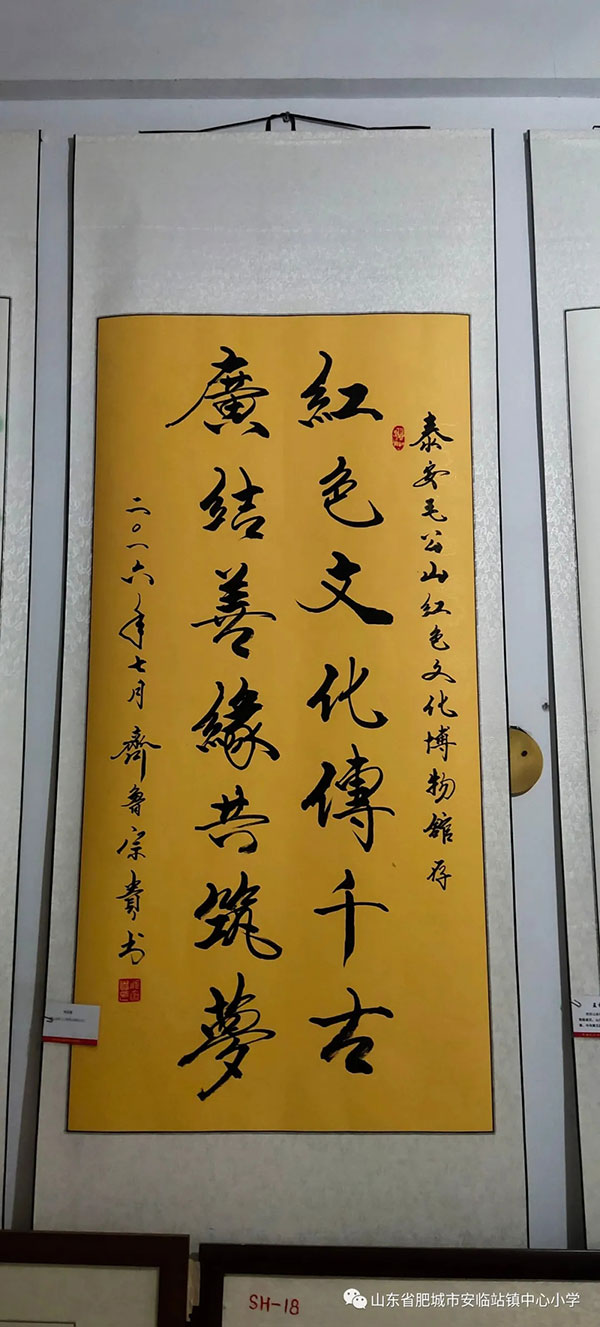 泰安毛公山红色文化博物館存
紅色文化傳千古
廣結善緣共筑夢
二〇一六年七月齊魯宗貴书
SH-18
山东省肥城市安临站镇中心小学